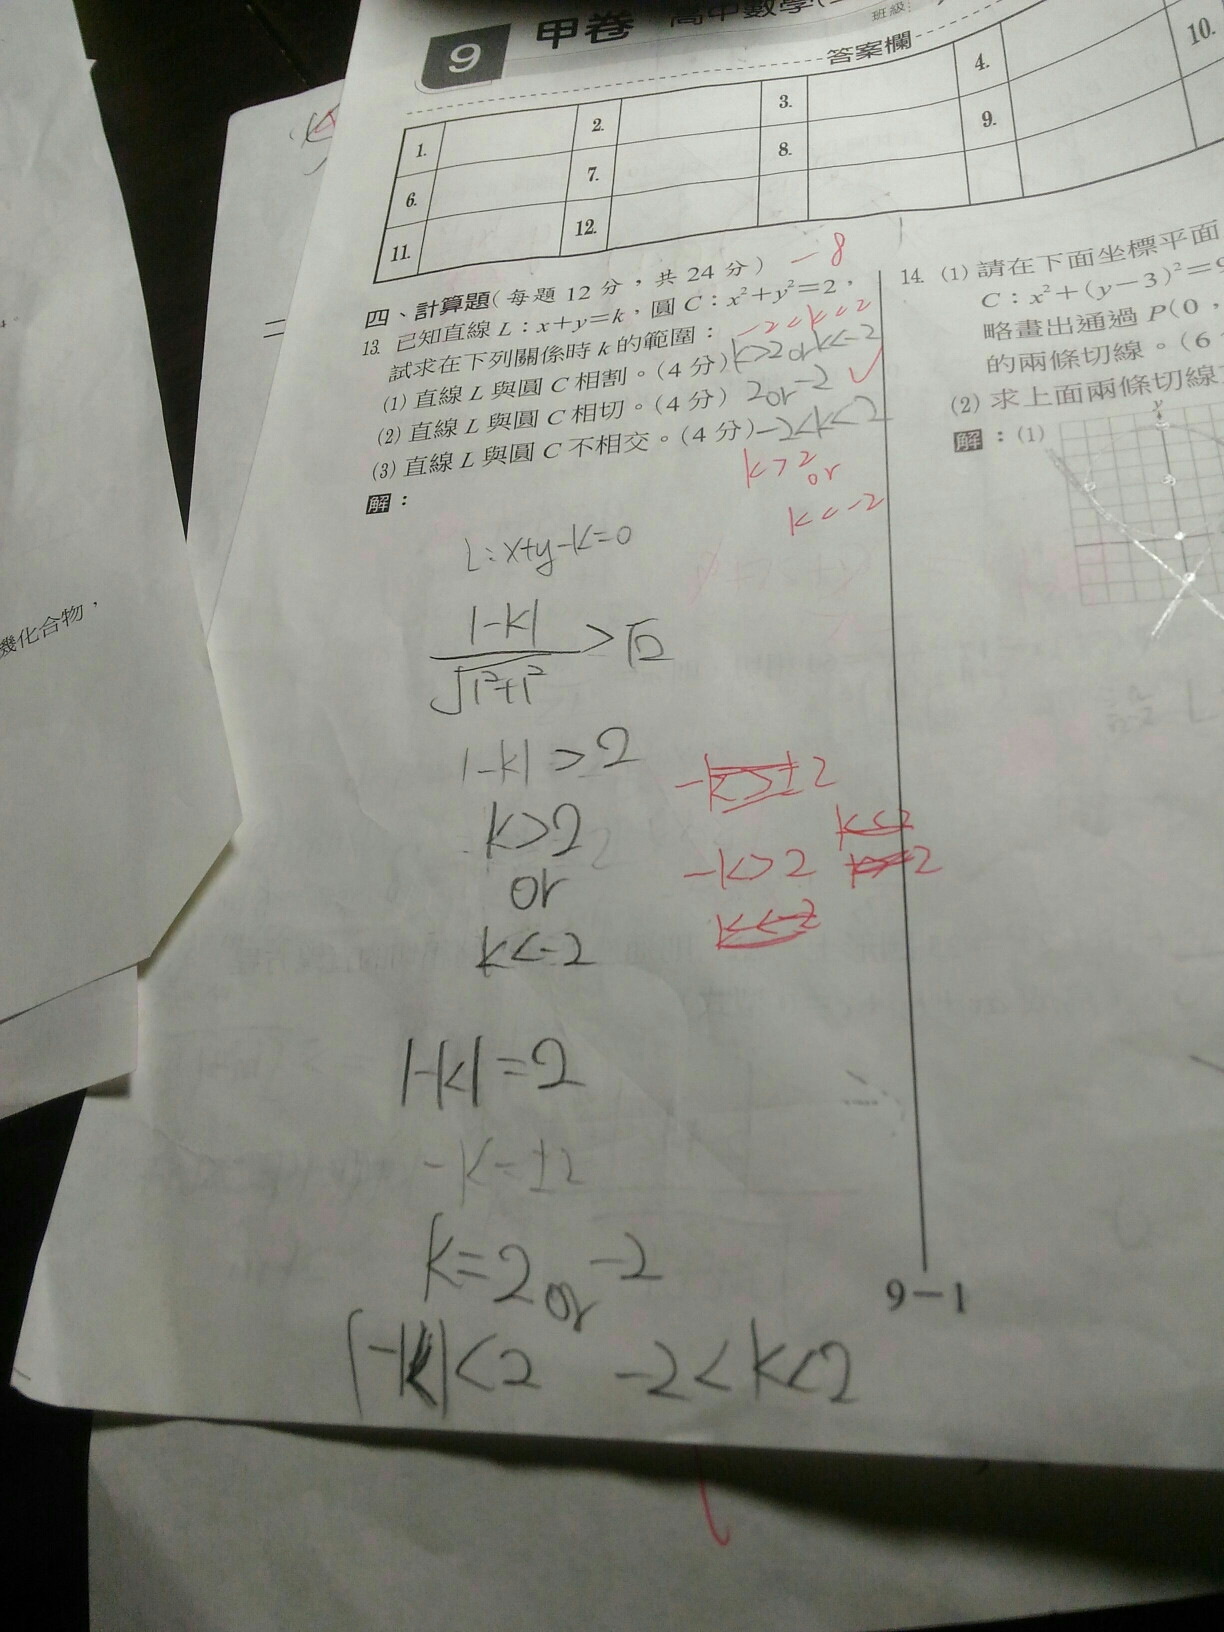 9 甲卷 高中數學(
班級:
答案欄
1. 2. 3. 4.
6. 7. 8. 9. 10.
11. 12.
四、計算題(每題 12 分,共 24 分) -8
13. 已知直線 L:x+y=k,圓 C:x²+y²=2,
試求在下列關係時 k 的範圍: -2<k<2
(1) 直線 L 與圓 C 相割。(4 分) k>2 or k<-2
(2) 直線 L 與圓 C 相切。(4 分) 2 or -2 ✓
(3) 直線 L 與圓 C 不相交。(4 分)
k>2
or
k<-2
解:
L:x+y-k=0
|-k|/√(1²+1²) > √2
|-k|>2
k>2
or
k<-2
-k>±2
-k>2
k<-2
|-k|=2
-k=±2
k=2 or -2
|-k|<2 -2<k<2
9-1
14. (1) 請在下面坐標平面
C:x²+(y-3)²=9
略畫出通過 P(0,
的兩條切線。(6
(2) 求上面兩條切線
解:(1)
y
機化合物,